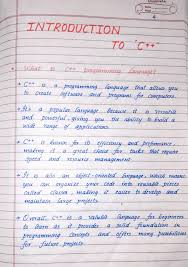 INTRODUCTION
TO "C++"
What is C++ programming language?
C++ is a programming language that allows you
to create software and programs for computers
It's a popular language because it is versatile
and powerful, giving you the ability to build a
wide range of applications.
C++ is known for its efficiency and performance,
making it great choice for tasks that require
speed and resource management.
It is also an object-oriented language, which means
you can organize your code into reusable pieces
called classes making it easier to develop and
maintain large projects.
Overall, C++ is a valuable language for beginners
to learn as it provides a solid foundation in
programming concepts and offers many possibilities
for future projects.